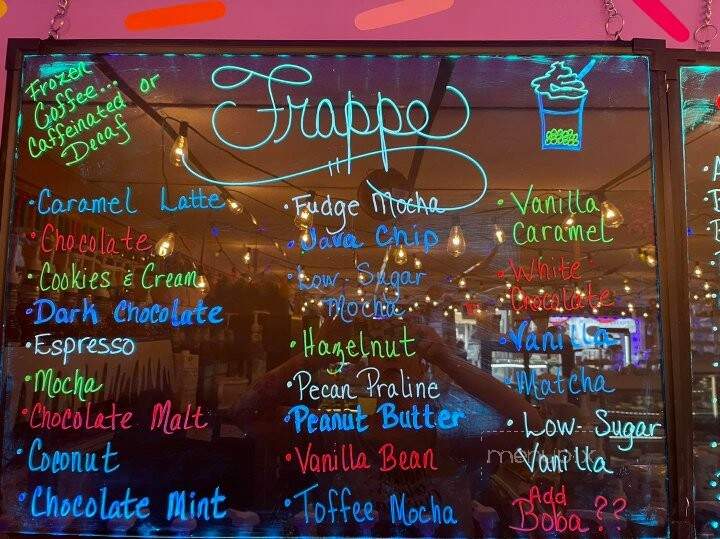 Frozen
Coffee... or
Caffeinated
Decaf
Frappe
•Caramel Latte
•Chocolate
•Cookies & Cream
•Dark Chocolate
•Espresso
•Mocha
•Chocolate Malt
•Coconut
•Chocolate Mint
•Fudge Mocha
•Java Chip
•Low Sugar
Mocha
•Hazelnut
•Pecan Praline
•Peanut Butter
•Vanilla Bean
•Toffee Mocha
•Vanilla
Caramel
•White
Chocolate
•Vanilla
•Matcha
•Low Sugar
Vanilla
Add
Boba ??